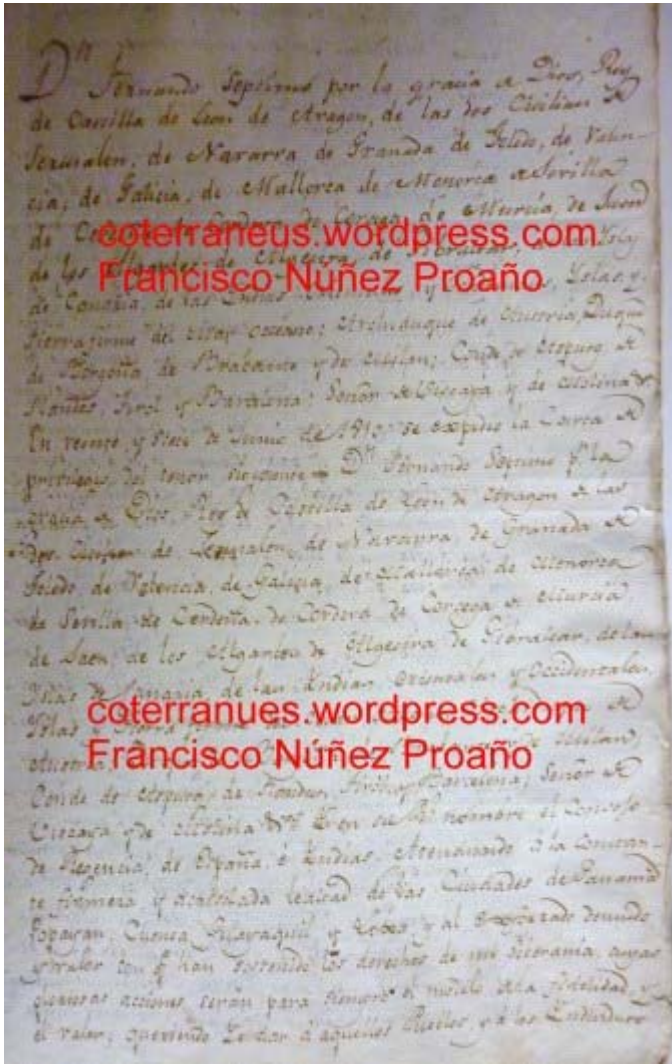 Dⁿ Fernando Septimo por la gracia de Dios, Rey
de Castilla de Leon de Aragon, de las dos Cicilias de
Jerusalen, de Navarra de Granada de Toledo, de Valen-
cia, de Galicia, de Mallorca de Menorca de Sevilla
de Cordova de Corcega de Murcia, de Jaen
coterraneus.wordpress.com
de los Algarbes de Algecira de Gibraltar,
Francisco Núñez Proaño
de Canaria, de las Yndias Islas, y
tierra firme del mar oceano; Archiduque de Austria, Duque
de Borgoña, de Brabante y de Milan; Conde de Aspurg, de
Flandes, Tirol y Barcelona; Señor de Viscaya y de Molina &
En veinte y siete de Junio de se expidio la Carta de
privilegio del tenor siguiente = Dⁿ Fernando Septimo p.r la
gracia de Dios, Rey de Castilla de Leon de Aragon de las
dos de Jerusalen, de Navarra de Granada de
Toledo de Valencia, de Galicia, de Mallorca, de Menorca
de Sevilla de Cerdeña, de Cordova de Corcega de Murcia
de Jaen, de los Algarbes de Algecira de Gibraltar, de las
Yslas de Canaria, de las Yndias orientales y Occidentales,
coterranues.wordpress.com
Yslas y tierra firme
Francisco Núñez Proaño
Austria, Milan,
Conde de Aspurg, de Flandes, Tirol, y Barcelona; Señor de
Viscaya y de Molina & Y en su R.l nombre el Consejo
de Regencia, de España é Yndias. Atendiendo á la constan-
te firmeza y acrisolada lealtad de las Ciudades de Panamá
Popayan Cuenca Guayaquil y y al denuedo
y valor con q.e han sostenido los derechos de mi soberania, cuyas
gloriosas acciones serán para siempre el modelo de la fidelidad y
el valor; queriendo á aquellos Pueblos, y á los Yndividuos